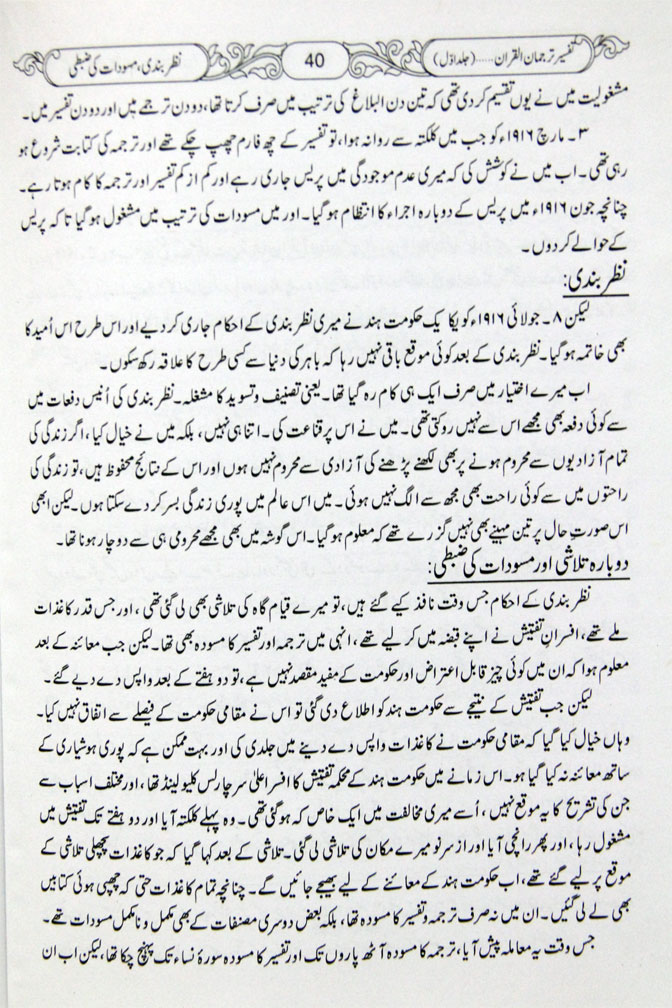 تفسیر ترجمان القرآن.....(جلد اوّل)
40
نظر بندی، مسودات کی ضبطی
مشغولیت میں نے یوں تقسیم کر دی تھی کہ تین دن البلاغ کی ترتیب میں صرف کرتا تھا، دو دن ترجمے میں اور دو دن تفسیر میں۔
۳۔ مارچ ۱۹۱۶ء کو جب میں کلکتہ سے روانہ ہوا، تو تفسیر کے چھ فارم چھپ چکے تھے اور ترجمہ کی کتابت شروع ہو
رہی تھی۔ اب میں نے کوشش کی کہ میری عدم موجودگی میں پریس جاری رہے اور کم از کم تفسیر اور ترجمہ کا کام ہوتا رہے۔
چنانچہ جون ۱۹۱۶ء میں پریس کے دوبارہ اجراء کا انتظام ہو گیا۔ اور میں مسودات کی ترتیب میں مشغول ہو گیا تا کہ پریس
کے حوالے کر دوں۔
نظر بندی:
لیکن ۸۔ جولائی ۱۹۱۶ء کو یکا یک حکومت ہند نے میری نظر بندی کے احکام جاری کر دیے اور اس طرح اس اُمید کا
بھی خاتمہ ہو گیا۔ نظر بندی کے بعد کوئی موقع باقی نہیں رہا کہ باہر کی دنیا سے کسی طرح کا علاقہ رکھ سکوں۔
اب میرے اختیار میں صرف ایک ہی کام رہ گیا تھا۔ یعنی تصنیف و تسوید کا مشغلہ۔ نظر بندی کی اُنیس دفعات میں
سے کوئی دفعہ بھی مجھے اس سے نہیں روکتی تھی۔ میں نے اس پر قناعت کی۔ اتنا ہی نہیں، بلکہ میں نے خیال کیا، اگر زندگی کی
تمام آزادیوں سے محروم ہونے پر بھی لکھنے پڑھنے کی آزادی سے محروم نہیں ہوں اور اس کے نتائج محفوظ ہیں، تو زندگی کی
راحتوں میں سے کوئی راحت بھی مجھ سے الگ نہیں ہوئی۔ میں اس عالم میں پوری زندگی بسر کر دے سکتا ہوں۔ لیکن ابھی
اس صورتِ حال پر تین مہینے بھی نہیں گزرے تھے کہ معلوم ہو گیا۔ اس گوشہ میں بھی مجھے محرومی ہی سے دوچار ہونا تھا۔
دوبارہ تلاشی اور مسودات کی ضبطی:
نظر بندی کے احکام جس وقت نافذ کیے گئے ہیں، تو میرے قیام گاہ کی تلاشی بھی لی گئی تھی، اور جس قدر کاغذات
ملے تھے، افسرانِ تفتیش نے اپنے قبضہ میں کر لیے تھے، انہی میں ترجمہ اور تفسیر کا مسودہ بھی تھا۔ لیکن جب معائنہ کے بعد
معلوم ہوا کہ ان میں کوئی چیز قابل اعتراض اور حکومت کے مفید مقصد نہیں ہے، تو دو ہفتے کے بعد واپس دے دیے گئے۔
لیکن جب تفتیش کے نتیجے سے حکومت ہند کو اطلاع دی گئی تو اس نے مقامی حکومت کے فیصلے سے اتفاق نہیں کیا۔
وہاں خیال کیا گیا کہ مقامی حکومت نے کاغذات واپس دے دینے میں جلدی کی اور بہت ممکن ہے کہ پوری ہوشیاری کے
ساتھ معائنہ نہ کیا گیا ہو۔ اس زمانے میں حکومت ہند کے محکمہ تفتیش کا افسر اعلیٰ سر چارلس کلیولینڈ تھا، اور مختلف اسباب سے
جن کی تشریح کا یہ موقع نہیں، اُسے میری مخالفت میں ایک خاص کد ہو گئی تھی۔ وہ پہلے کلکتہ آیا اور دو ہفتے تک تفتیش میں
مشغول رہا، اور پھر رانچی آیا اور از سرِ نو میرے مکان کی تلاشی لی گئی۔ تلاشی کے بعد کہا گیا کہ جو کاغذات پچھلی تلاشی کے
موقع پر لیے گئے تھے، اب حکومت ہند کے معائنے کے لیے بھیجے جائیں گے۔ چنانچہ تمام کاغذات حتیٰ کہ چھپی ہوئی کتابیں
بھی لے لی گئیں۔ ان میں نہ صرف ترجمہ و تفسیر کا مسودہ تھا، بلکہ بعض دوسری مصنفات کے بھی مکمل و نامکمل مسودات تھے۔
جس وقت یہ معاملہ پیش آیا، ترجمہ کا مسودہ آٹھ پاروں تک اور تفسیر کا مسودہ سورۂ نساء تک پہنچ چکا تھا، لیکن اب ان